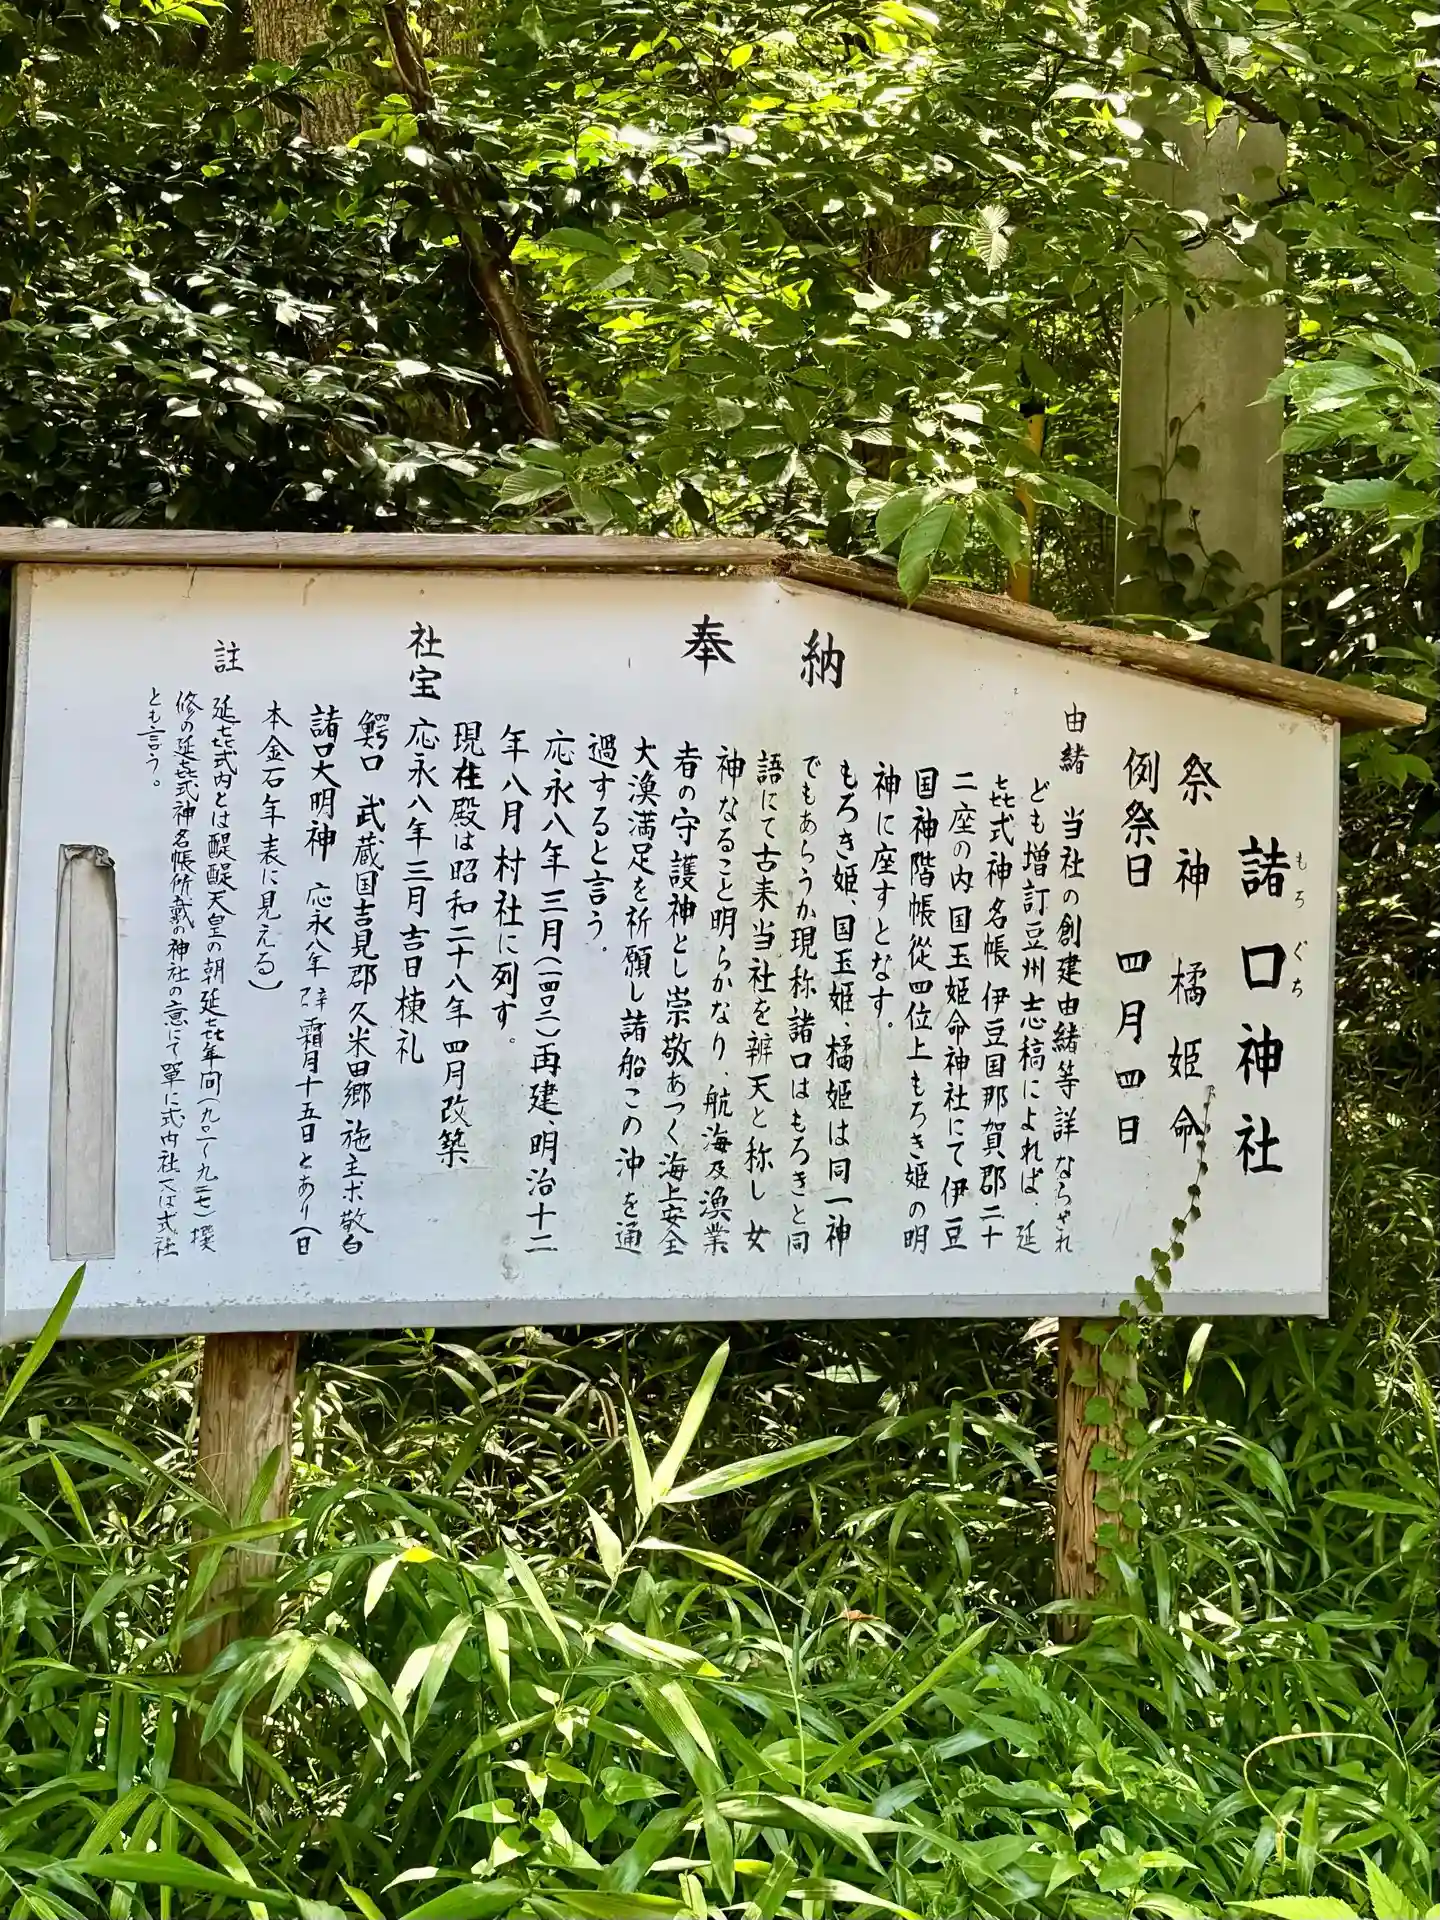 諸口神社
もろぐち
祭神 橘姫命
例祭日 四月四日
由緒 当社の創建由緒等詳ならざれ
ども増訂豆州志稿によれば、延
㐂式神名帳伊豆国那賀郡二十
二座の内国玉姫命神社にて伊豆
国神階帳従四位上もろき姫の明
神に座すとなす。
もろき姫、国玉姫、橘姫は同一神
でもあらうか現称諸口はもろきと同
語にて古来当社を辨天と称し女
神なること明らかなり、航海及漁業
者の守護神とし崇敬あつく海上安全
大漁満足を祈願し諸船この沖を通
過すると言う。
応永八年三月(一四〇二)再建、明治十二
年八月村社に列す。
現在殿は昭和二十八年四月改築
奉納
社宝 応永八年三月吉日棟礼
鰐口 武蔵国吉見郡久米田郷施主ボ敬白
諸口大明神 応永八年 霜月十五日とあり(日
本金石年表に見える)
註 延㐂式内とは醍醐天皇の朝延㐂年間(九〇一〜九二七)撰
修の延㐂式神名帳所載の神社の意にて單に式内社又は式社
とも言う。